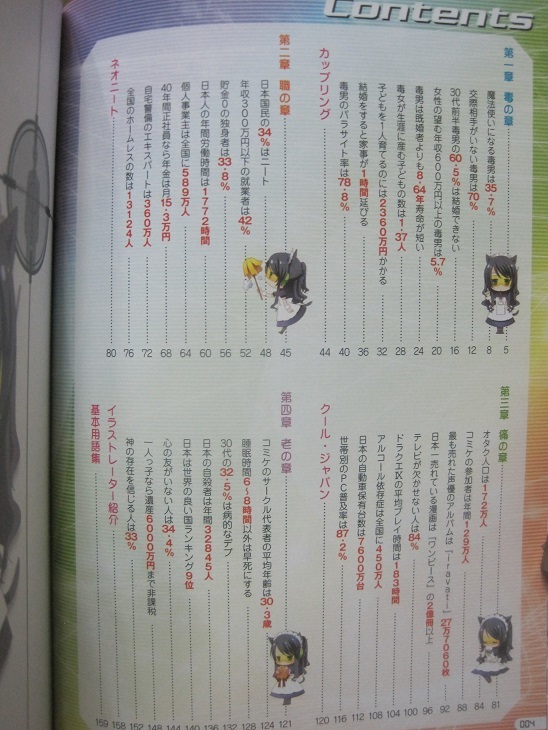 Contents
第一章 毒の章
魔法使いになる毒男は35・7% 5
交際相手がいない毒男は70% 8
30代前半毒男の60・5%は結婚できない 12
女性の望む年収600万円以上の毒男は5.7% 16
毒男は既婚者よりも8・64年寿命が短い 20
毒女が生涯に産む子どもの数は1・37人 24
子どもを1人育てるのには2360万円かかる 28
結婚をすると家事が1時間延びる 32
毒男のパラサイト率は78・8% 36
40
カップリング 44
第二章 職の章 45
日本国民の34%はニート 48
年収300万円以下の就業者は42% 52
貯金0の独身者は33・8% 56
日本人の年間労働時間は1772時間 60
個人事業主は全国に589万人 64
40年間正社員なら年金は月15・3万円 68
自宅警備のエキスパートは360万人 72
全国のホームレスの数は13124人 76
ネオニート 80
第三章 痛の章 81
オタク人口は172万人 84
コミケの参加者は年間129万人 88
最も売れた声優のアルバムは 27万7060枚 92
日本一売れている漫画は『ワンピース』の2億冊以上 96
テレビが欠かせない人は84% 100
ドラクエIXの平均プレイ時間は183時間 104
アルコール依存症は全国に450万人 108
日本の自動車保有台数は7600万台 112
世帯別のPC普及率は87・2% 116
クール・ジャパン 120
第四章 老の章 121
コミケのサークル代表者の平均年齢は30・3歳 124
睡眠時間6~8時間以外は早死にする 128
30代の32・5%は病的なデブ 132
日本の自殺者は年間32845人 136
日本は世界の良い国ランキング9位 140
心の友がいない人は34・4% 144
一人っ子なら遺産6000万円まで非課税 148
神の存在を信じる人は33% 152
イラストレーター紹介 158
基本用語集 159
004